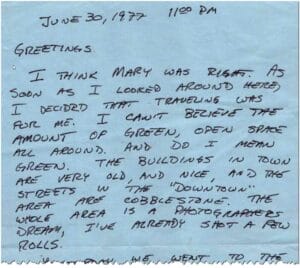 JUNE 30, 1977 1100 PM
GREETINGS.
I THINK MARY WAS RIGHT. AS
SOON AS I LOOKED AROUND HERE,
I DECIDED THAT TRAVELING WAS
FOR ME. I CAN'T BELIEVE THE
AMOUNT OF GREEN, OPEN SPACE
ALL AROUND. AND DO I MEAN
GREEN. THE BUILDINGS IN TOWN
ARE VERY OLD, AND NICE, AND THE
STREETS IN THE "DOWNTOWN"
AREA ARE COBBLESTONE. THE
WHOLE AREA IS A PHOTOGRAPHERS
DREAM, I'VE ALREADY SHOT A FEW
ROLLS.
WE WENT TO THE